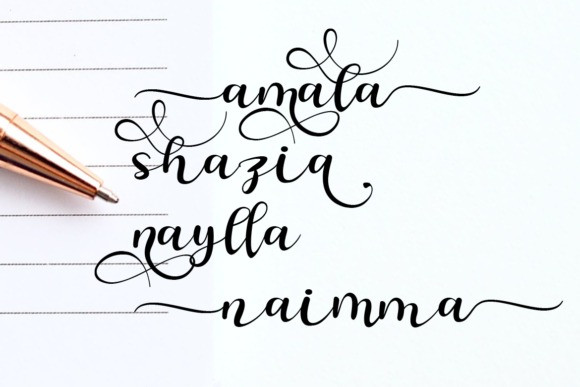 amala
shazia
naylla
naimma